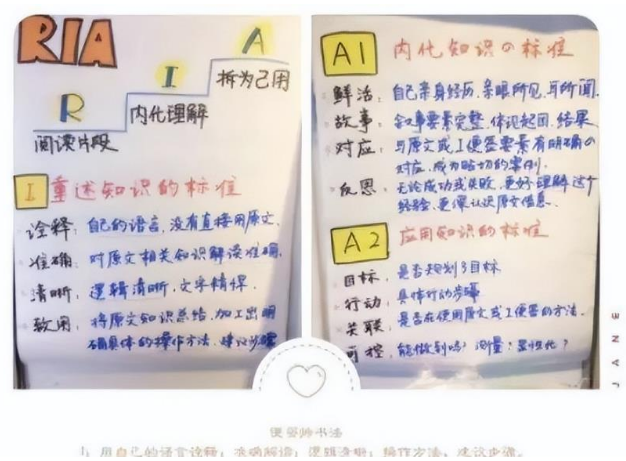 RIA
A
I
拆为己用
R
内化理解
阅读片段
I 重述知识的标准
诠释：自己的语言，没有直接用原文.
准确：对原文相关知识解读准确.
清晰：逻辑清晰，文字精悍.
致用：将原文知识总结，加工出明
确具体的操作方法，建议步骤
A1 内化知识の标准
鲜活：自己亲身经历，亲眼所见，耳所闻.
故事：叙事要素完整，体现起因，结果
对应：与原文或I便签要素有明确の
对应，成为贴切的案例.
反思：无论成功或失败，更好理解这个
经验，更深认识原文信息.
A2 应用知识的标准
目标，是否规划了目标
行动：具体行的步骤
关联，是否在使用原文或I便签的方法.
可控，能做到吗？测量？显性化？
JANE
便签帅书法
1、用自己的语言诠释；准确解读；逻辑清晰；操作方法、建议步骤。